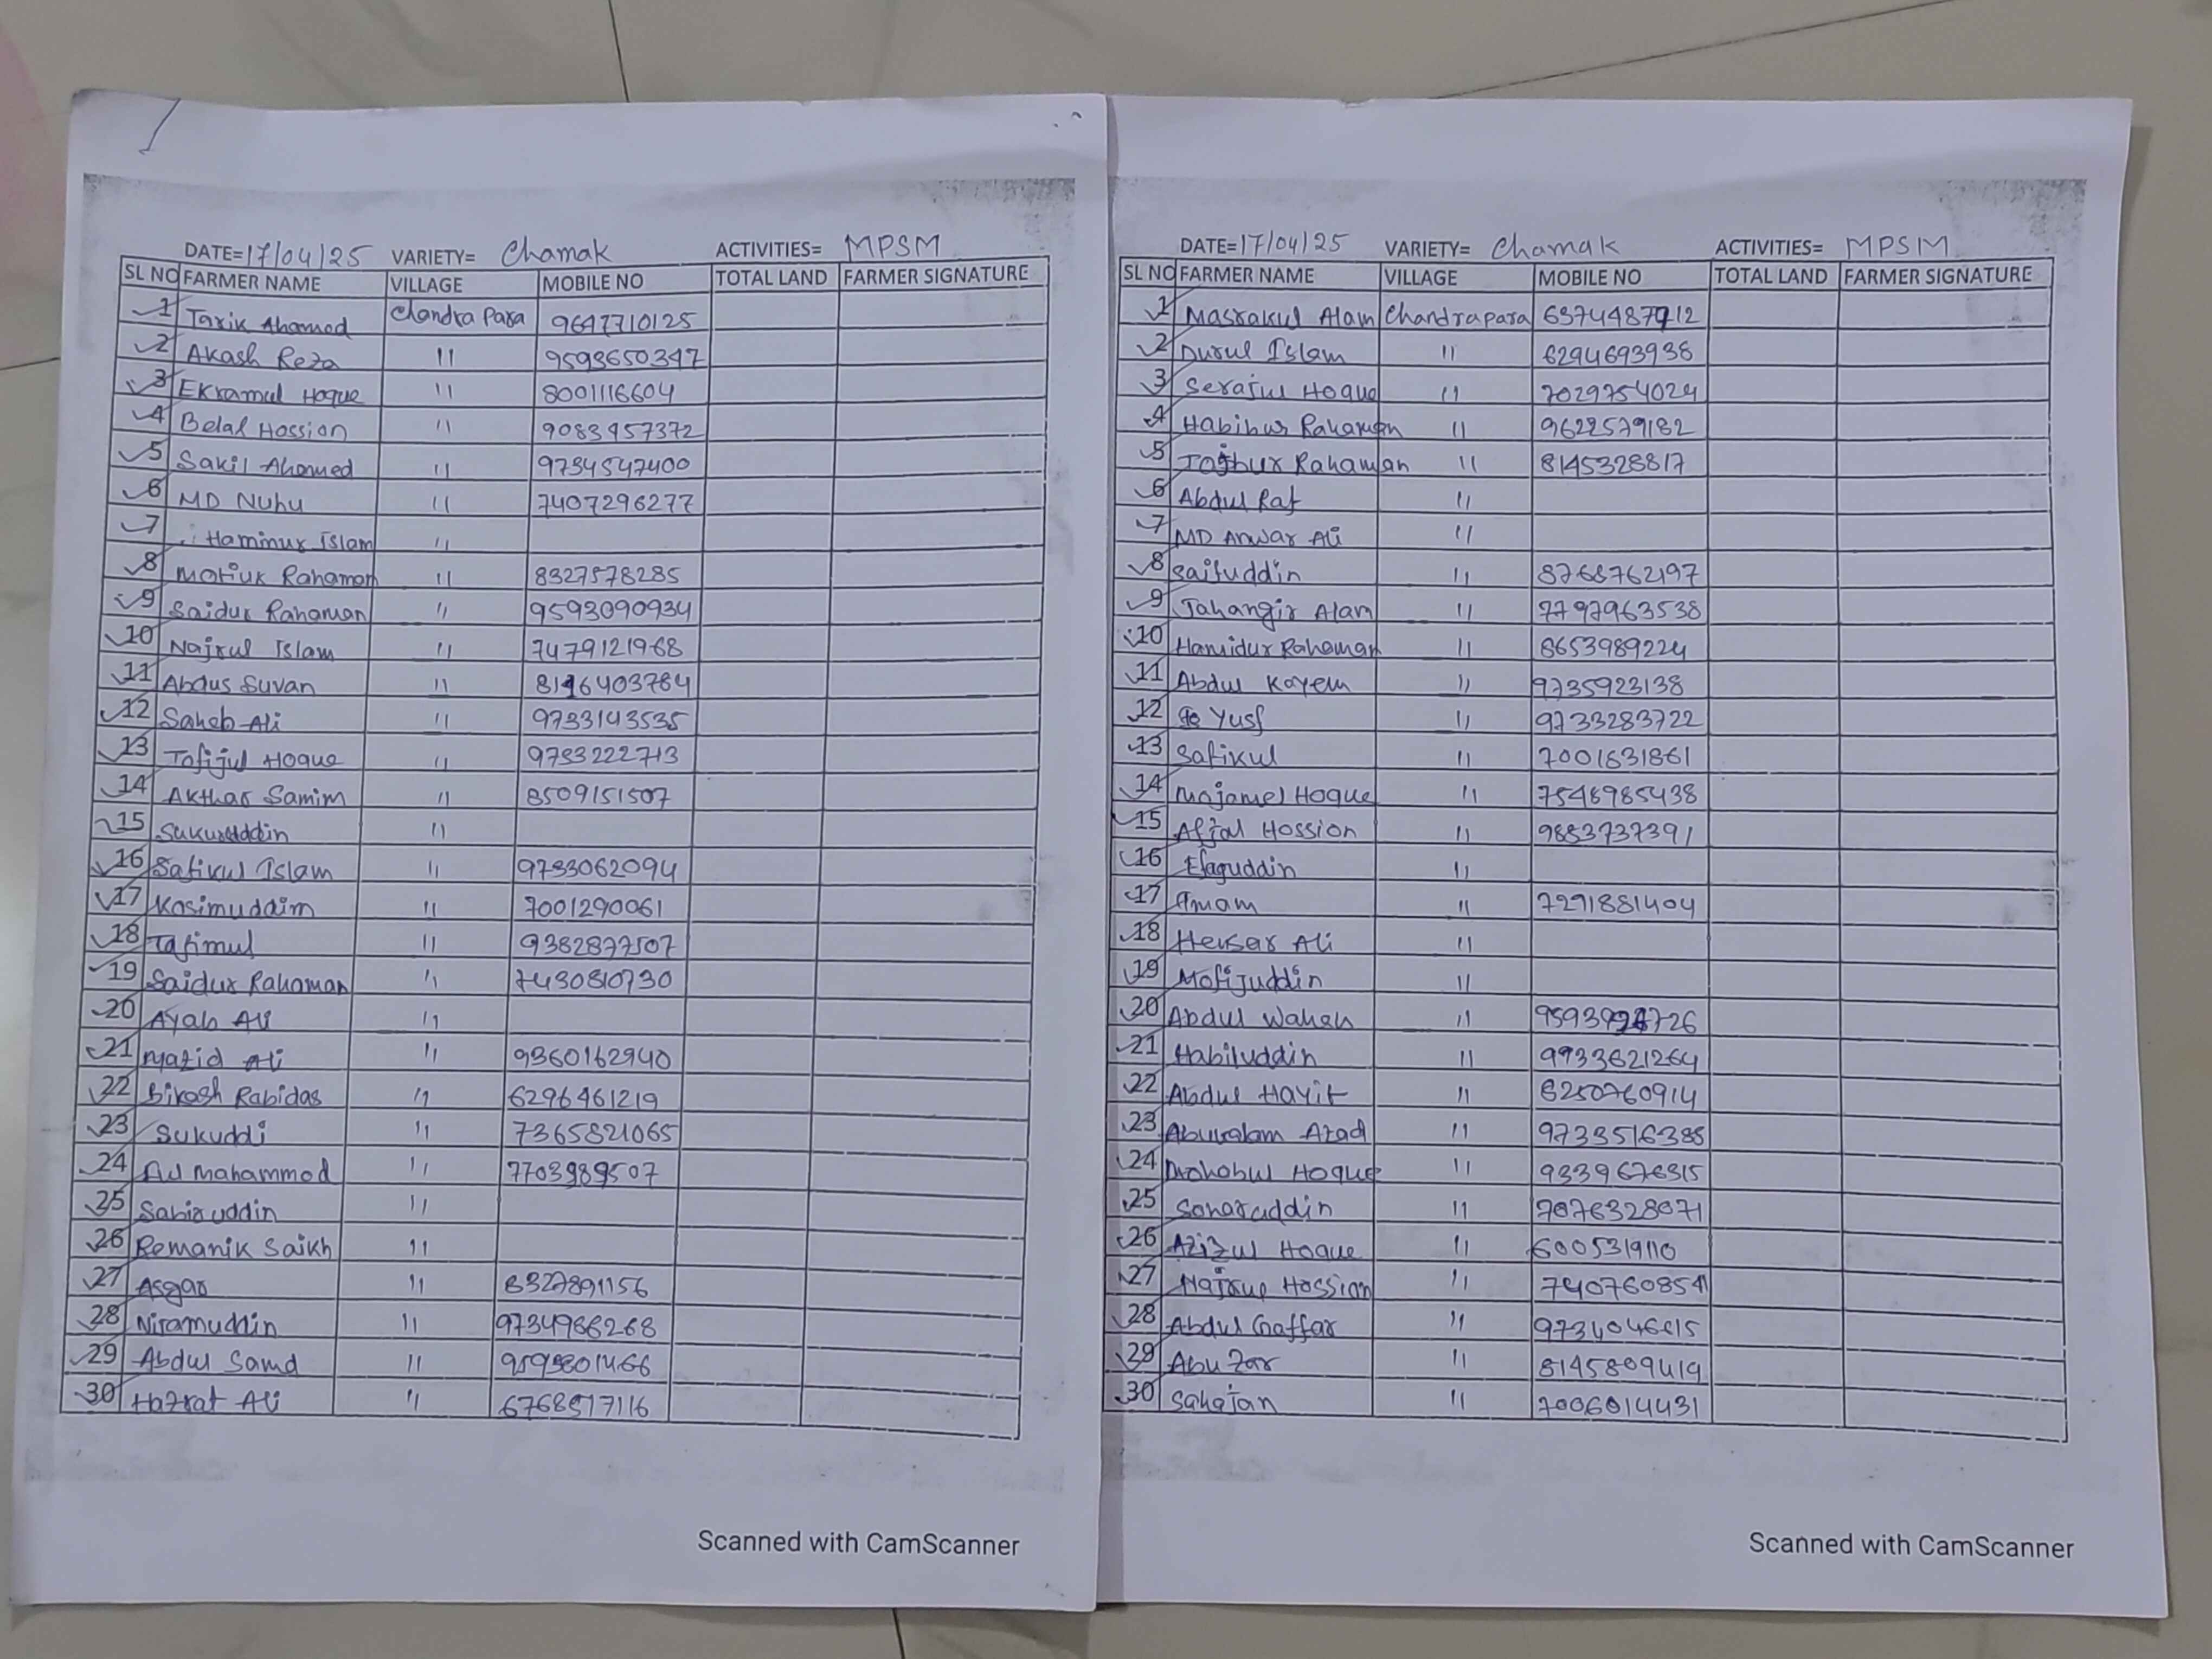 DATE=17/04/25 VARIETY= Chamak ACTIVITIES= MPSM
SL NO FARMER NAME VILLAGE MOBILE NO TOTAL LAND FARMER SIGNATURE
1 Tarik Ahamed Chandra Para 9647710125
2 Akash Reza " 9593650347
3 Ekramul Hoque " 8001116604
4 Belal Hossion " 9083957372
5 Sakil Ahamed " 9734547400
6 MD Nuhu " 7407296277
7 Haminur Islam "
8 Matiur Rahaman " 8327578285
9 Saidur Rahaman " 9593090934
10 Najrul Islam " 7479121968
11 Abdus Suvan "
12 Saheb Ali " 9733143535
13 Tofijul Hoque " 9733222713
14 Akthar Samim " 8509151507
15 "
16 Safikul Islam " 9733062094
17 Kasimuddim " 7001290061
18 Tafimul " 9382877507
19 Saidur Rahaman " 7430810730
20 Ayab Ali "
21 Mazid Ali " 9360162940
22 Bikash Rabidas " 6296461219
23 Sukuddi " 7365821065
24 Mahammod " 7703989507
25 Sabiruddin "
26 Romanik Saikh "
27 Asgar " 8327891156
28 Niramuddin " 9734986268
29 Abdul Samd "
30 Hazrat Ali " 6768517116
Scanned with CamScanner
DATE=17/04/25 VARIETY= Chamak ACTIVITIES= MPSM
SL NO FARMER NAME VILLAGE MOBILE NO TOTAL LAND FARMER SIGNATURE
1 Masrakul Alam Chandrapara
2 Durul Islam " 6294693938
3 Serajul Hoque " 7029754024
4 Habibur Rahaman " 9622579182
5 Rahaman " 8145328817
6 Abdul Raf "
7 MD Anwar Ali "
8 Saifuddin " 8768762197
9 Jahangir Alam " 7797963538
10 Hamidur Rahaman " 8653989224
11 Abdul Kayem " 9735923138
12 Yusf " 9733283722
13 Safikul " 7001631861
14 Majamel Hoque " 7548985438
15 Afjal Hossion " 9883737391
16 Efaguddin "
17 Imam " 7291881404
18 Ali "
19 Mofijuddin "
20 Abdul Wahab "
21 Habiluddin " 9933621264
22 Abdul Hayit " 8250760914
23 Abuvalam Azad " 9733516388
24 Hoque " 9339676315
25 " 7076328071
26 Azizul Hoque " 6005319110
27 Hossion "
28 Abdul Gaffar "
29 Abu Zar " 8145809419
30 Sahajan " 7006014431
Scanned with CamScanner